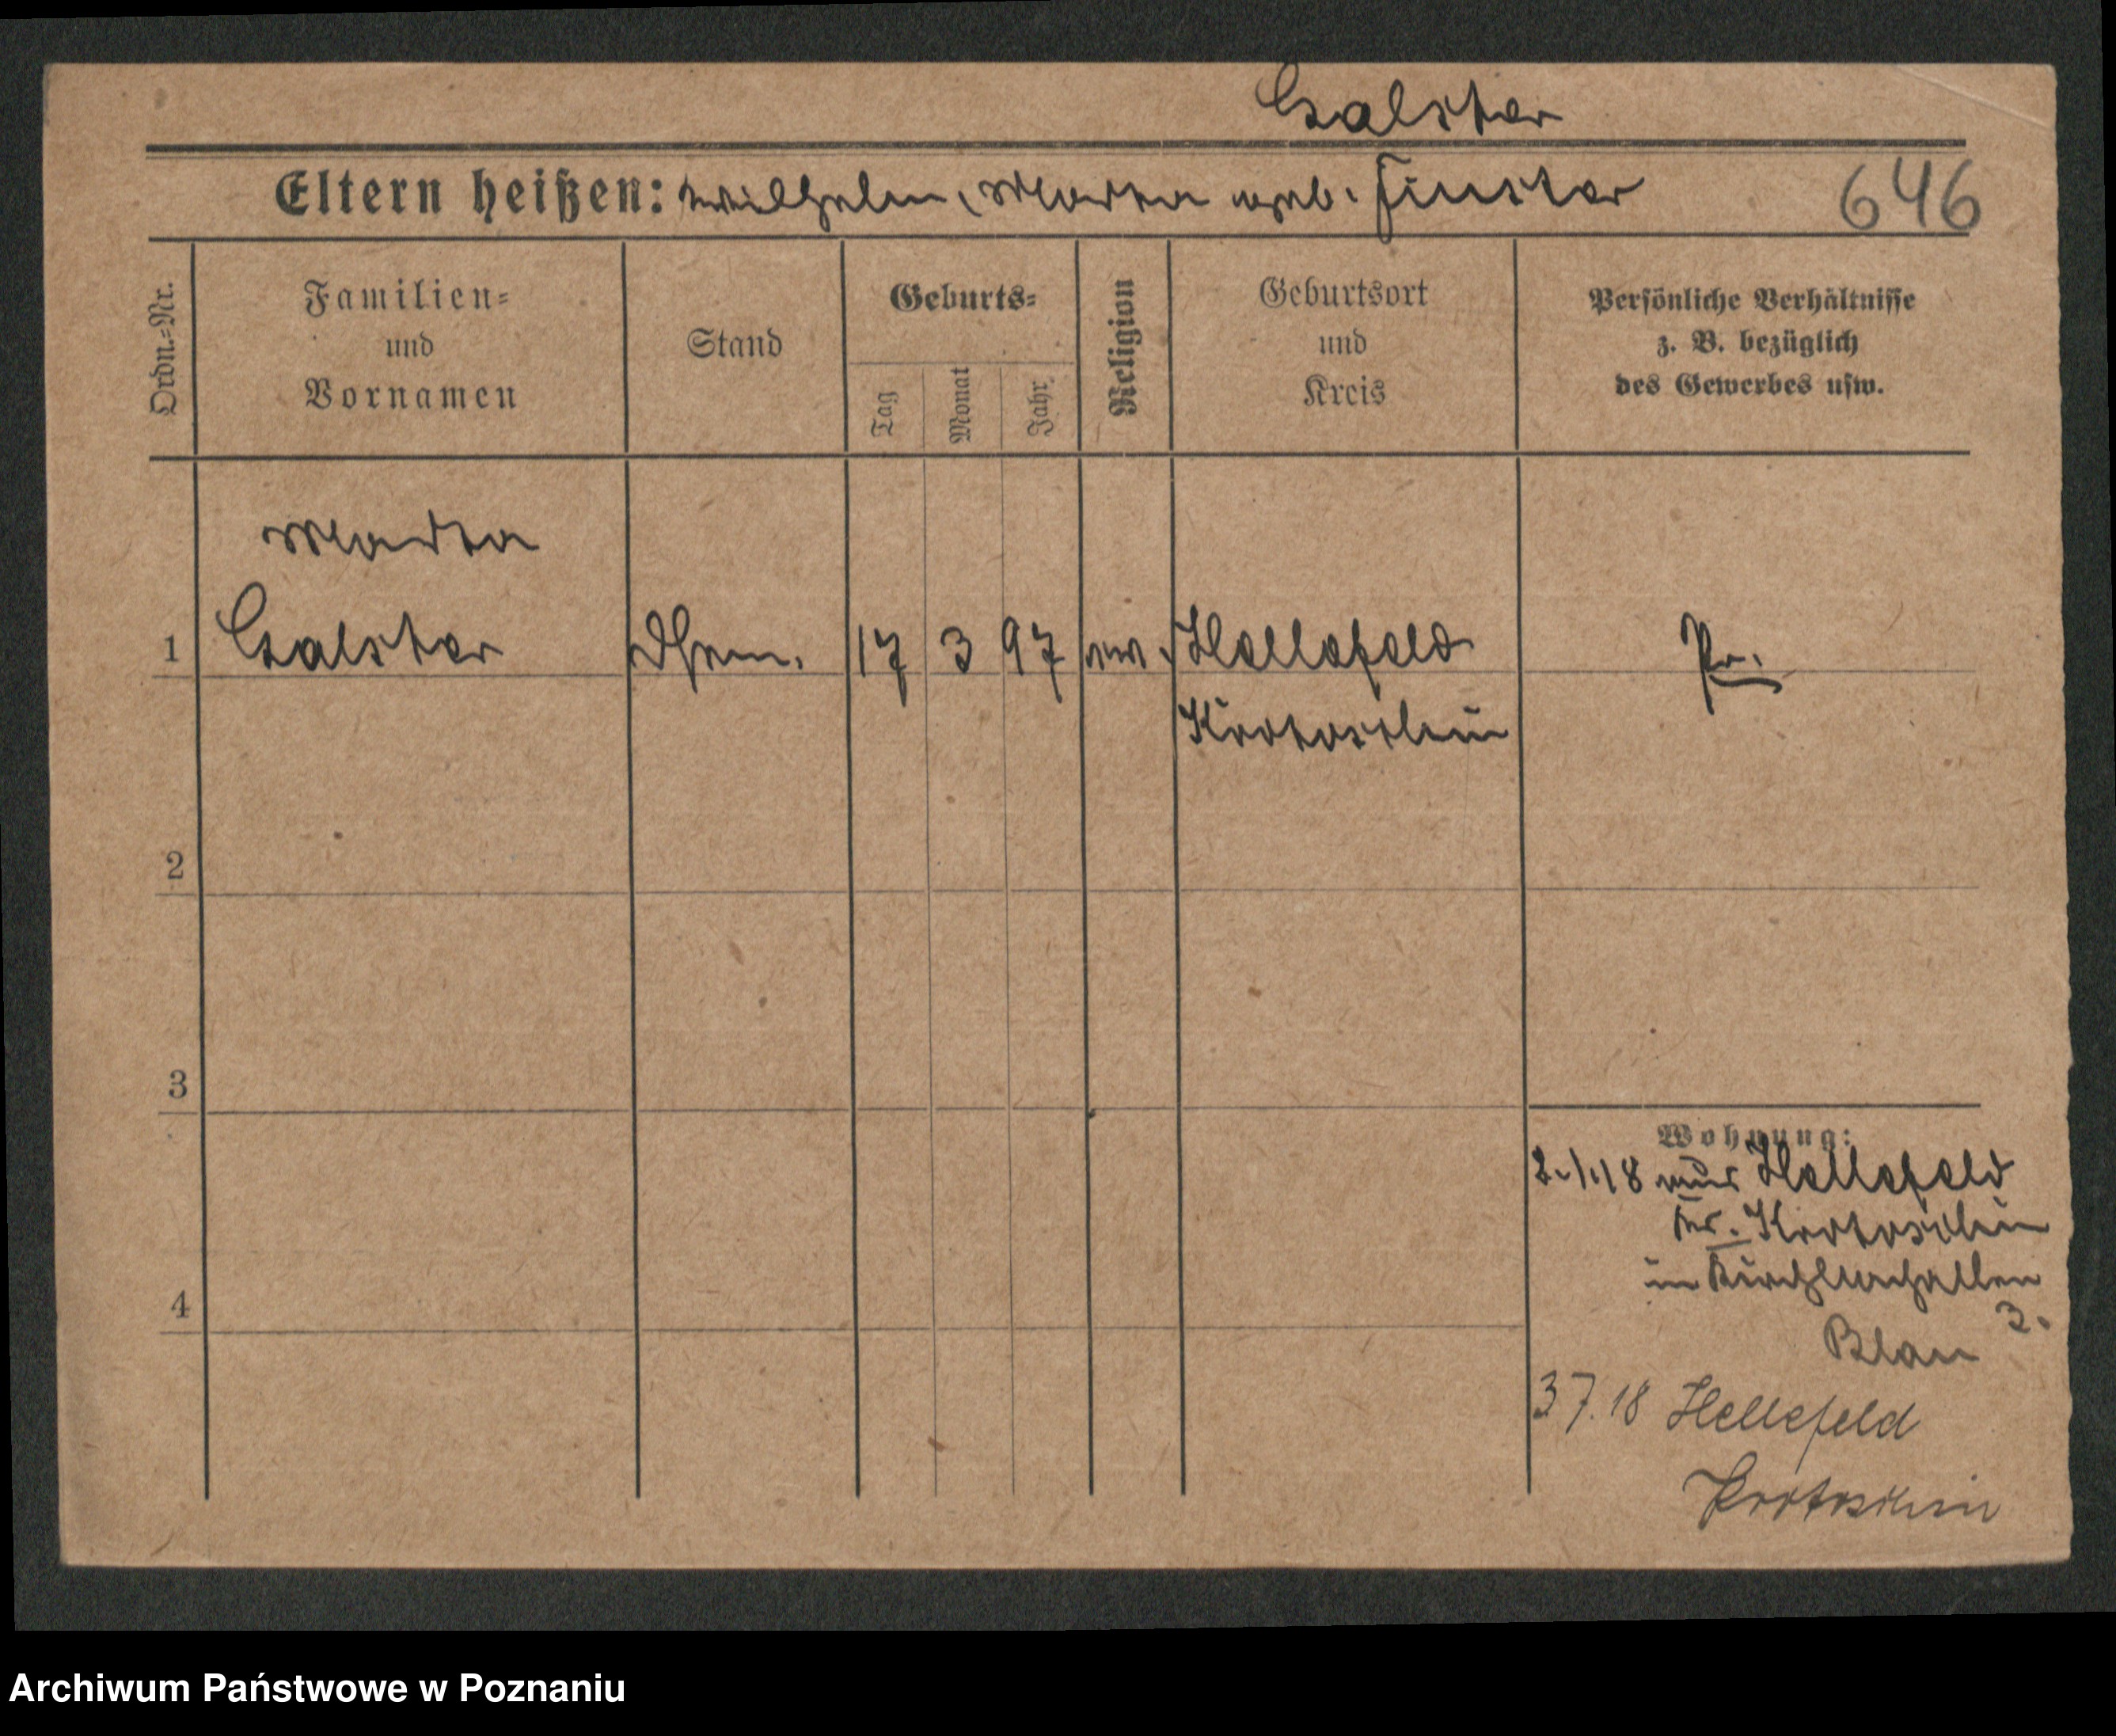 Galster
Eltern heißen: Wilhelm, Marta geb. Finster
646
Ordn.=Nr.
Familien=
und
Vornamen
Stand
Geburts=
Tag
Monat
Jahr
Religion
Geburtsort
und
Kreis
Persönliche Verhältnisse
z. B. bezüglich
des Gewerbes usw.
Marta
1 Galster 17 3 97 ev. Hellefeld Pr.
Krotoschin
2
3
4
Wohnung:
2.1.18 aus Hellefeld
Kr. Krotoschin
in
3.
Blau
3 7. 18 Hellefeld
Krotoschin
Archiwum Państwowe w Poznaniu